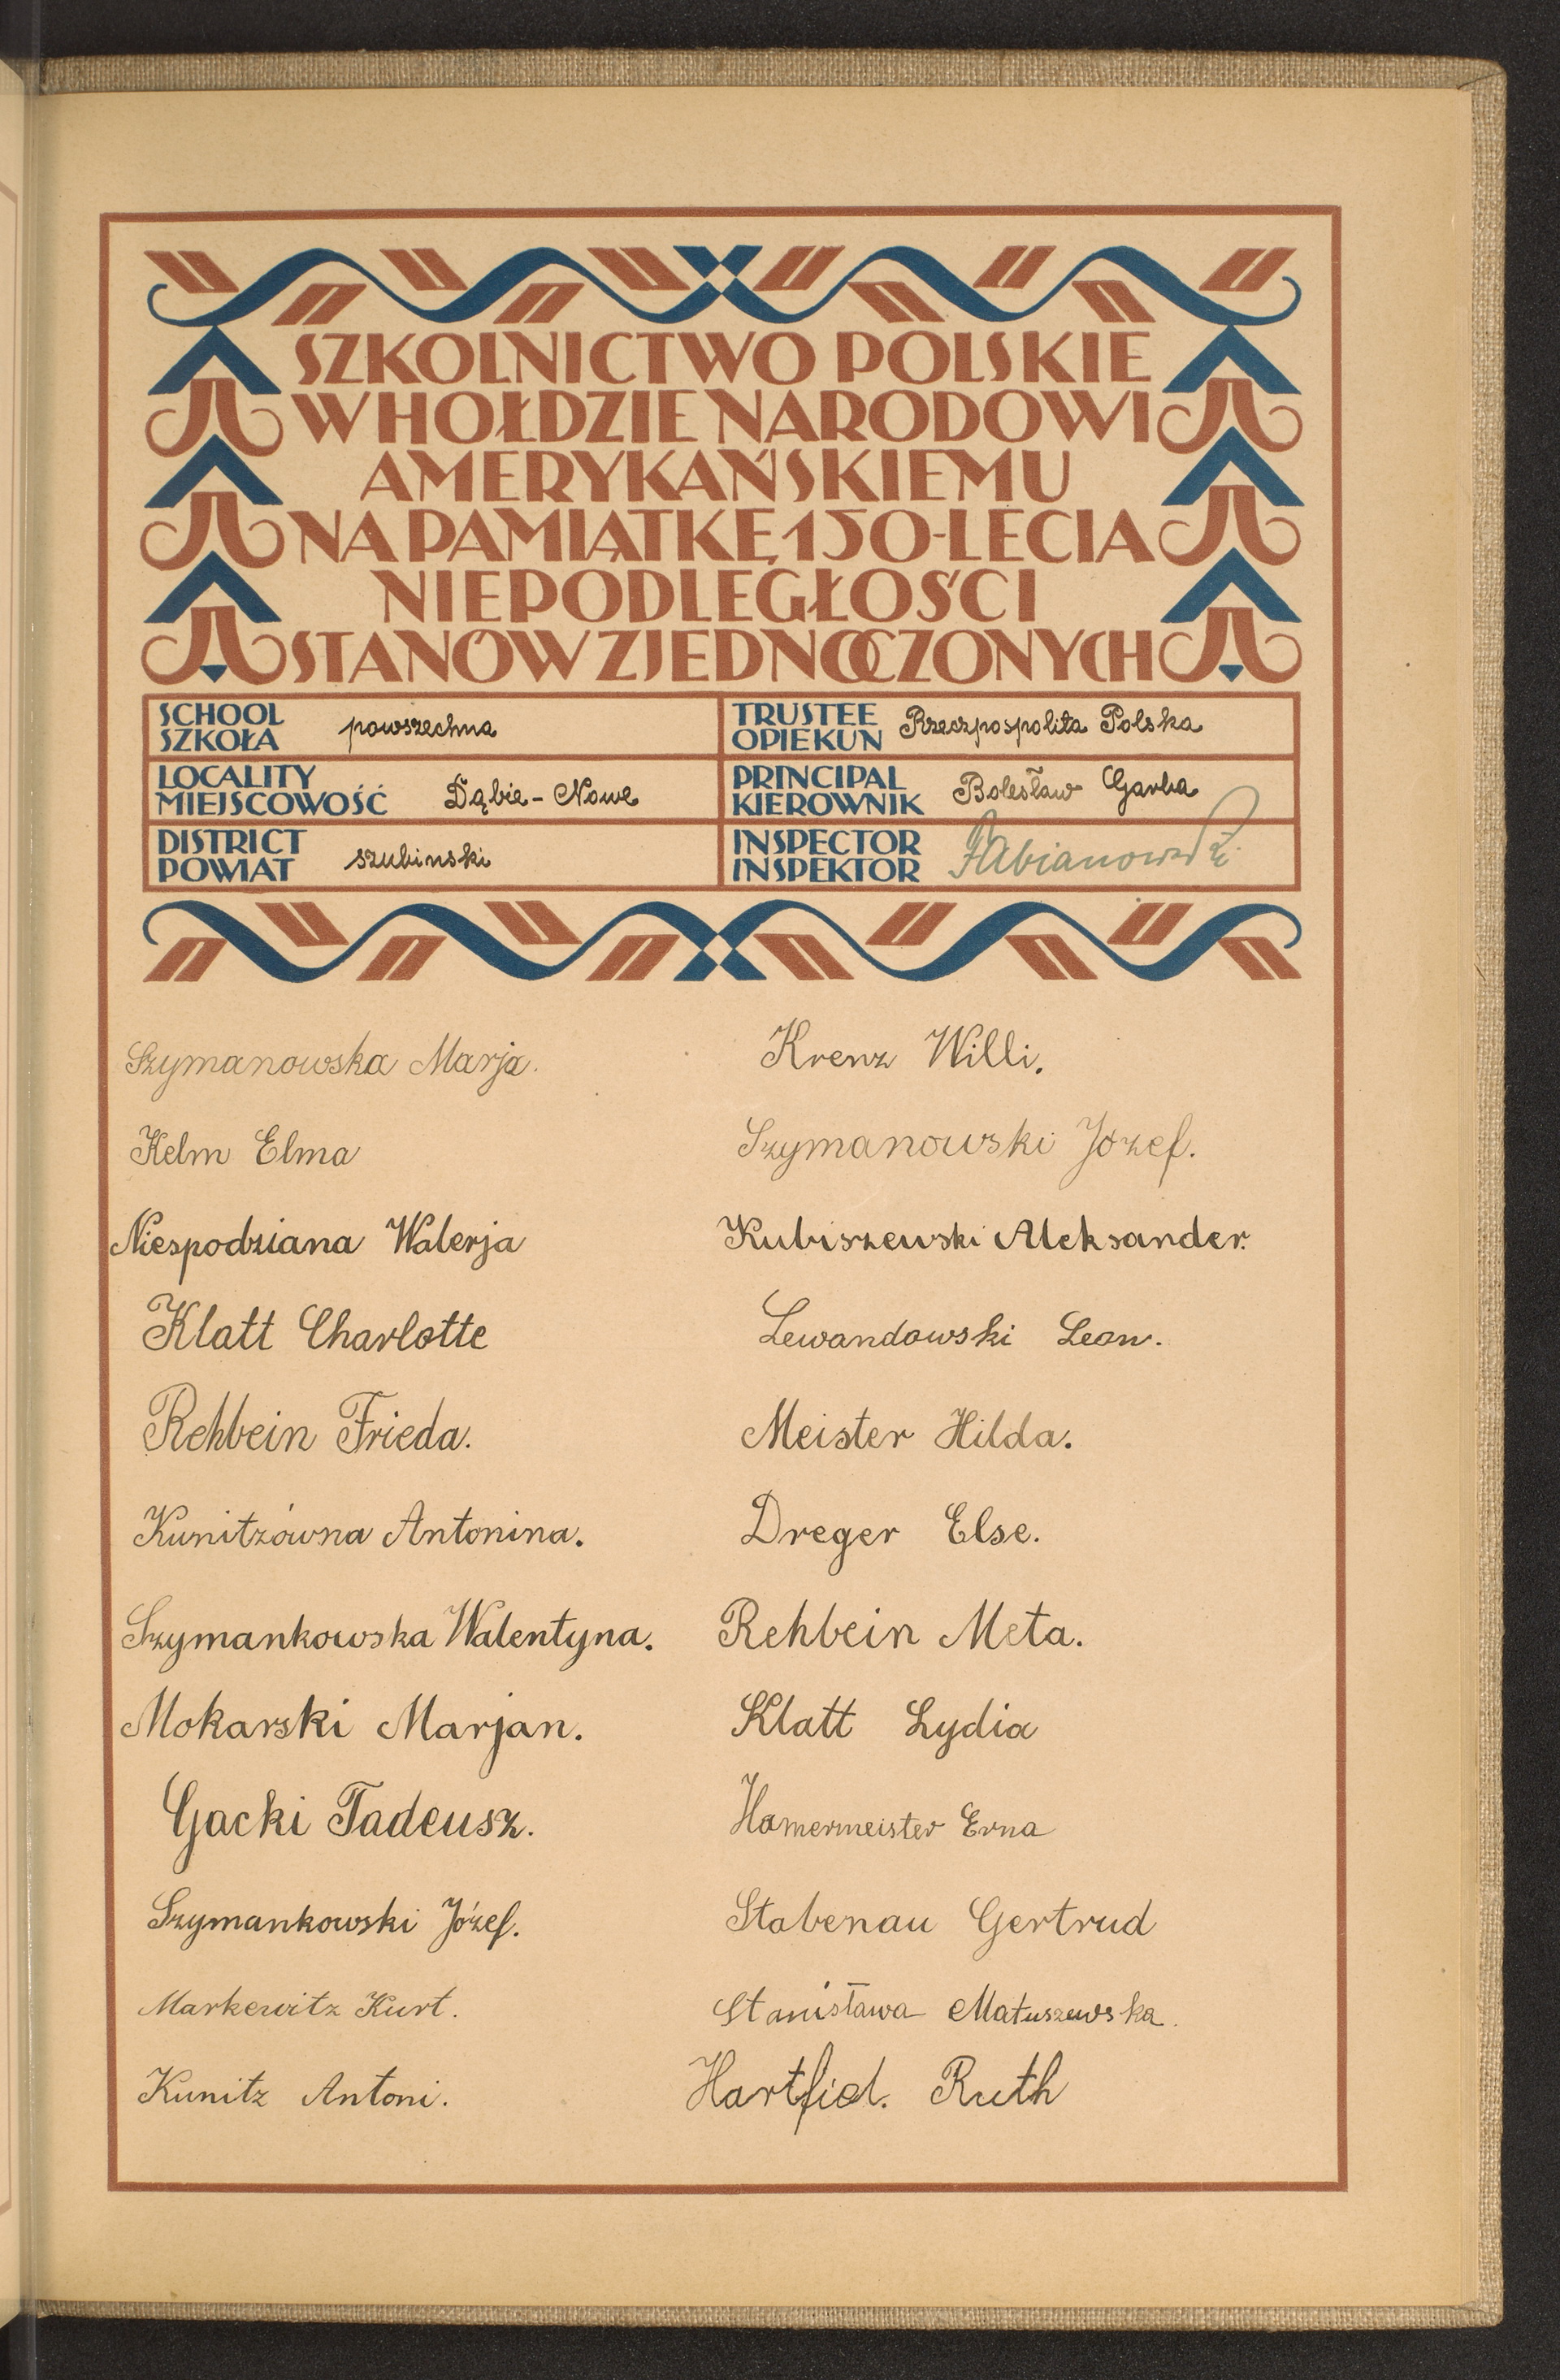 SZKOLNICTWO POLSKIE
W HOŁDZIE NARODOWI
AMERYKAŃSKIEMU
NA PAMIĄTKĘ 150-LECIA
NIEPODLEGŁOŚCI
STANÓW ZJEDNOCZONYCH
SCHOOL
SZKOŁA powszechna
TRUSTEE
OPIEKUN Rzeczpospolita Polska
LOCALITY
MIEJSCOWOŚĆ Dąbie-Nowe
PRINCIPAL
KIEROWNIK Bolesław Garba
DISTRICT
POWIAT szubinski
INSPECTOR
INSPEKTOR Fabianowski
Szymanowska Marja.
Kelm Elma
Niespodziana Walerja
Klatt Charlotte
Rehbein Frieda.
Kunitzówna Antonina.
Szymankowska Walentyna.
Mokarski Marjan.
Gacki Tadeusz.
Szymankowski Józef.
Markewitz Kurt.
Kunitz Antoni.
Krenz Willi.
Szymanowski Józef.
Kubiszewski Aleksander.
Lewandowski Leon.
Meister Hilda.
Dreger Else.
Rehbein Meta.
Klatt Lydia
Hamermeister Erna
Stabenau Gertrud
Stanisława Matuszewska.
Hartfiel. Ruth